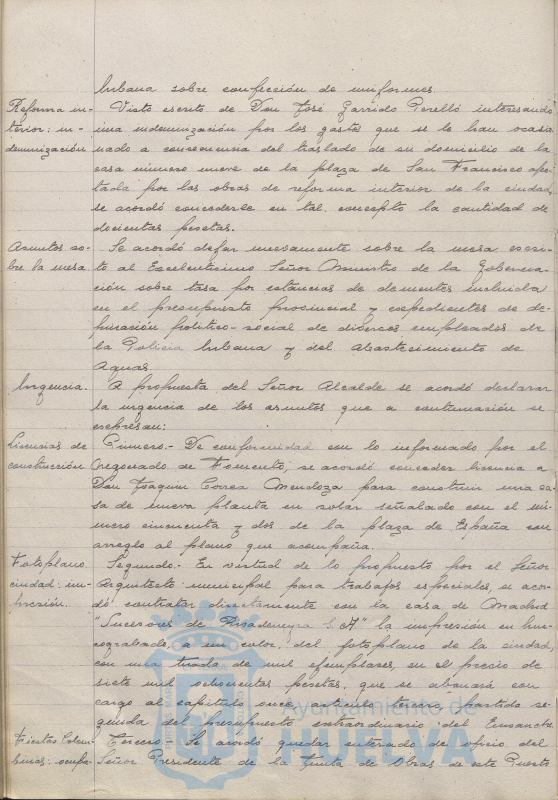 Urbana sobre confección de uniformes.
Reforma in-
terior: in-
demnización
Visto escrito de Don José Garrido Perelló interesando
una indemnización por los gastos que se le han ocasio
nado a consecuencia del traslado de su domicilio de la
casa número nueve de la plaza de San Francisco afec
tada por las obras de reforma interior de la ciudad,
se acordó concederle en tal concepto la cantidad de
docientas pesetas.
Asuntos so-
bre la mesa
Se acordó dejar nuevamente sobre la mesa escri-
to al Excelentísimo Señor Ministro de la Goberna-
ción sobre tasa por estancias de dementes incluida
en el presupuesto provincial y expedientes de de-
puración político-social de diversos empleados de
la Policía Urbana y del Abastecimiento de
Aguas.
Urgencia.
A propuesta del Señor Alcalde se acordó declarar
la urgencia de los asuntos que a continuación se
expresan:
Licencias de
construcción
Primero.- De conformidad con lo informado por el
negociado de Fomento, se acordó conceder licencia a
Don Joaquín Correa Mendoza para construir una ca-
sa de nueva planta en solar señalado con el nú-
mero cincuenta y dos de la plaza de España con
arreglo al plano que acompaña.
Fotoplano
ciudad: im-
presión.
Segundo.- En virtud de lo propuesto por el Señor
Arquitecto municipal para trabajos especiales, se acor-
dó contratar directamente con la casa de Madrid
"Sucesores de Rivadeneyra S.A" la impresión en hue-
cograbado, a un color, del fotoplano de la ciudad,
con una tirada de mil ejemplares, en el precio de
siete mil ochocientas pesetas, que se abonará con
cargo al capítulo once, artículo tercero, partida se-
gunda del presupuesto extraordinario del Ensanche.
Fiestas Colom-
binas: ocupa-
Tercero.- Se acordó quedar enterado de oficio del
Señor Presidente de la Junta de Obras de este Puerto
Ayuntamiento de
HUELVA